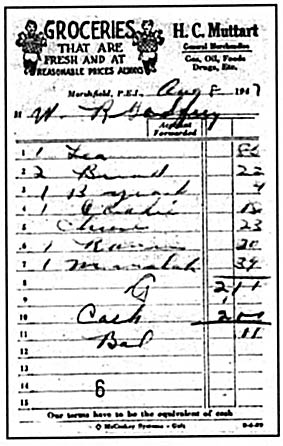 GROCERIES
THAT ARE
FRESH AND AT
REASONABLE PRICES ALWAYS
H. C. Muttart
General Merchandise
Gas, Oil, Feeds
Drugs, Etc.
Marshfield, P.E.I., Aug 8 1947
M W. R. Godfrey
Account
Forwarded
1 1 Tea
2 2 Bread 22
3 1
4 1
5 Cheese 23
6 1 20
7 1 Marmalade 39
8 211
9
10 Cash 200
11 Bal 11
12
13
14
6
15
Our terms have to be the equivalent of cash